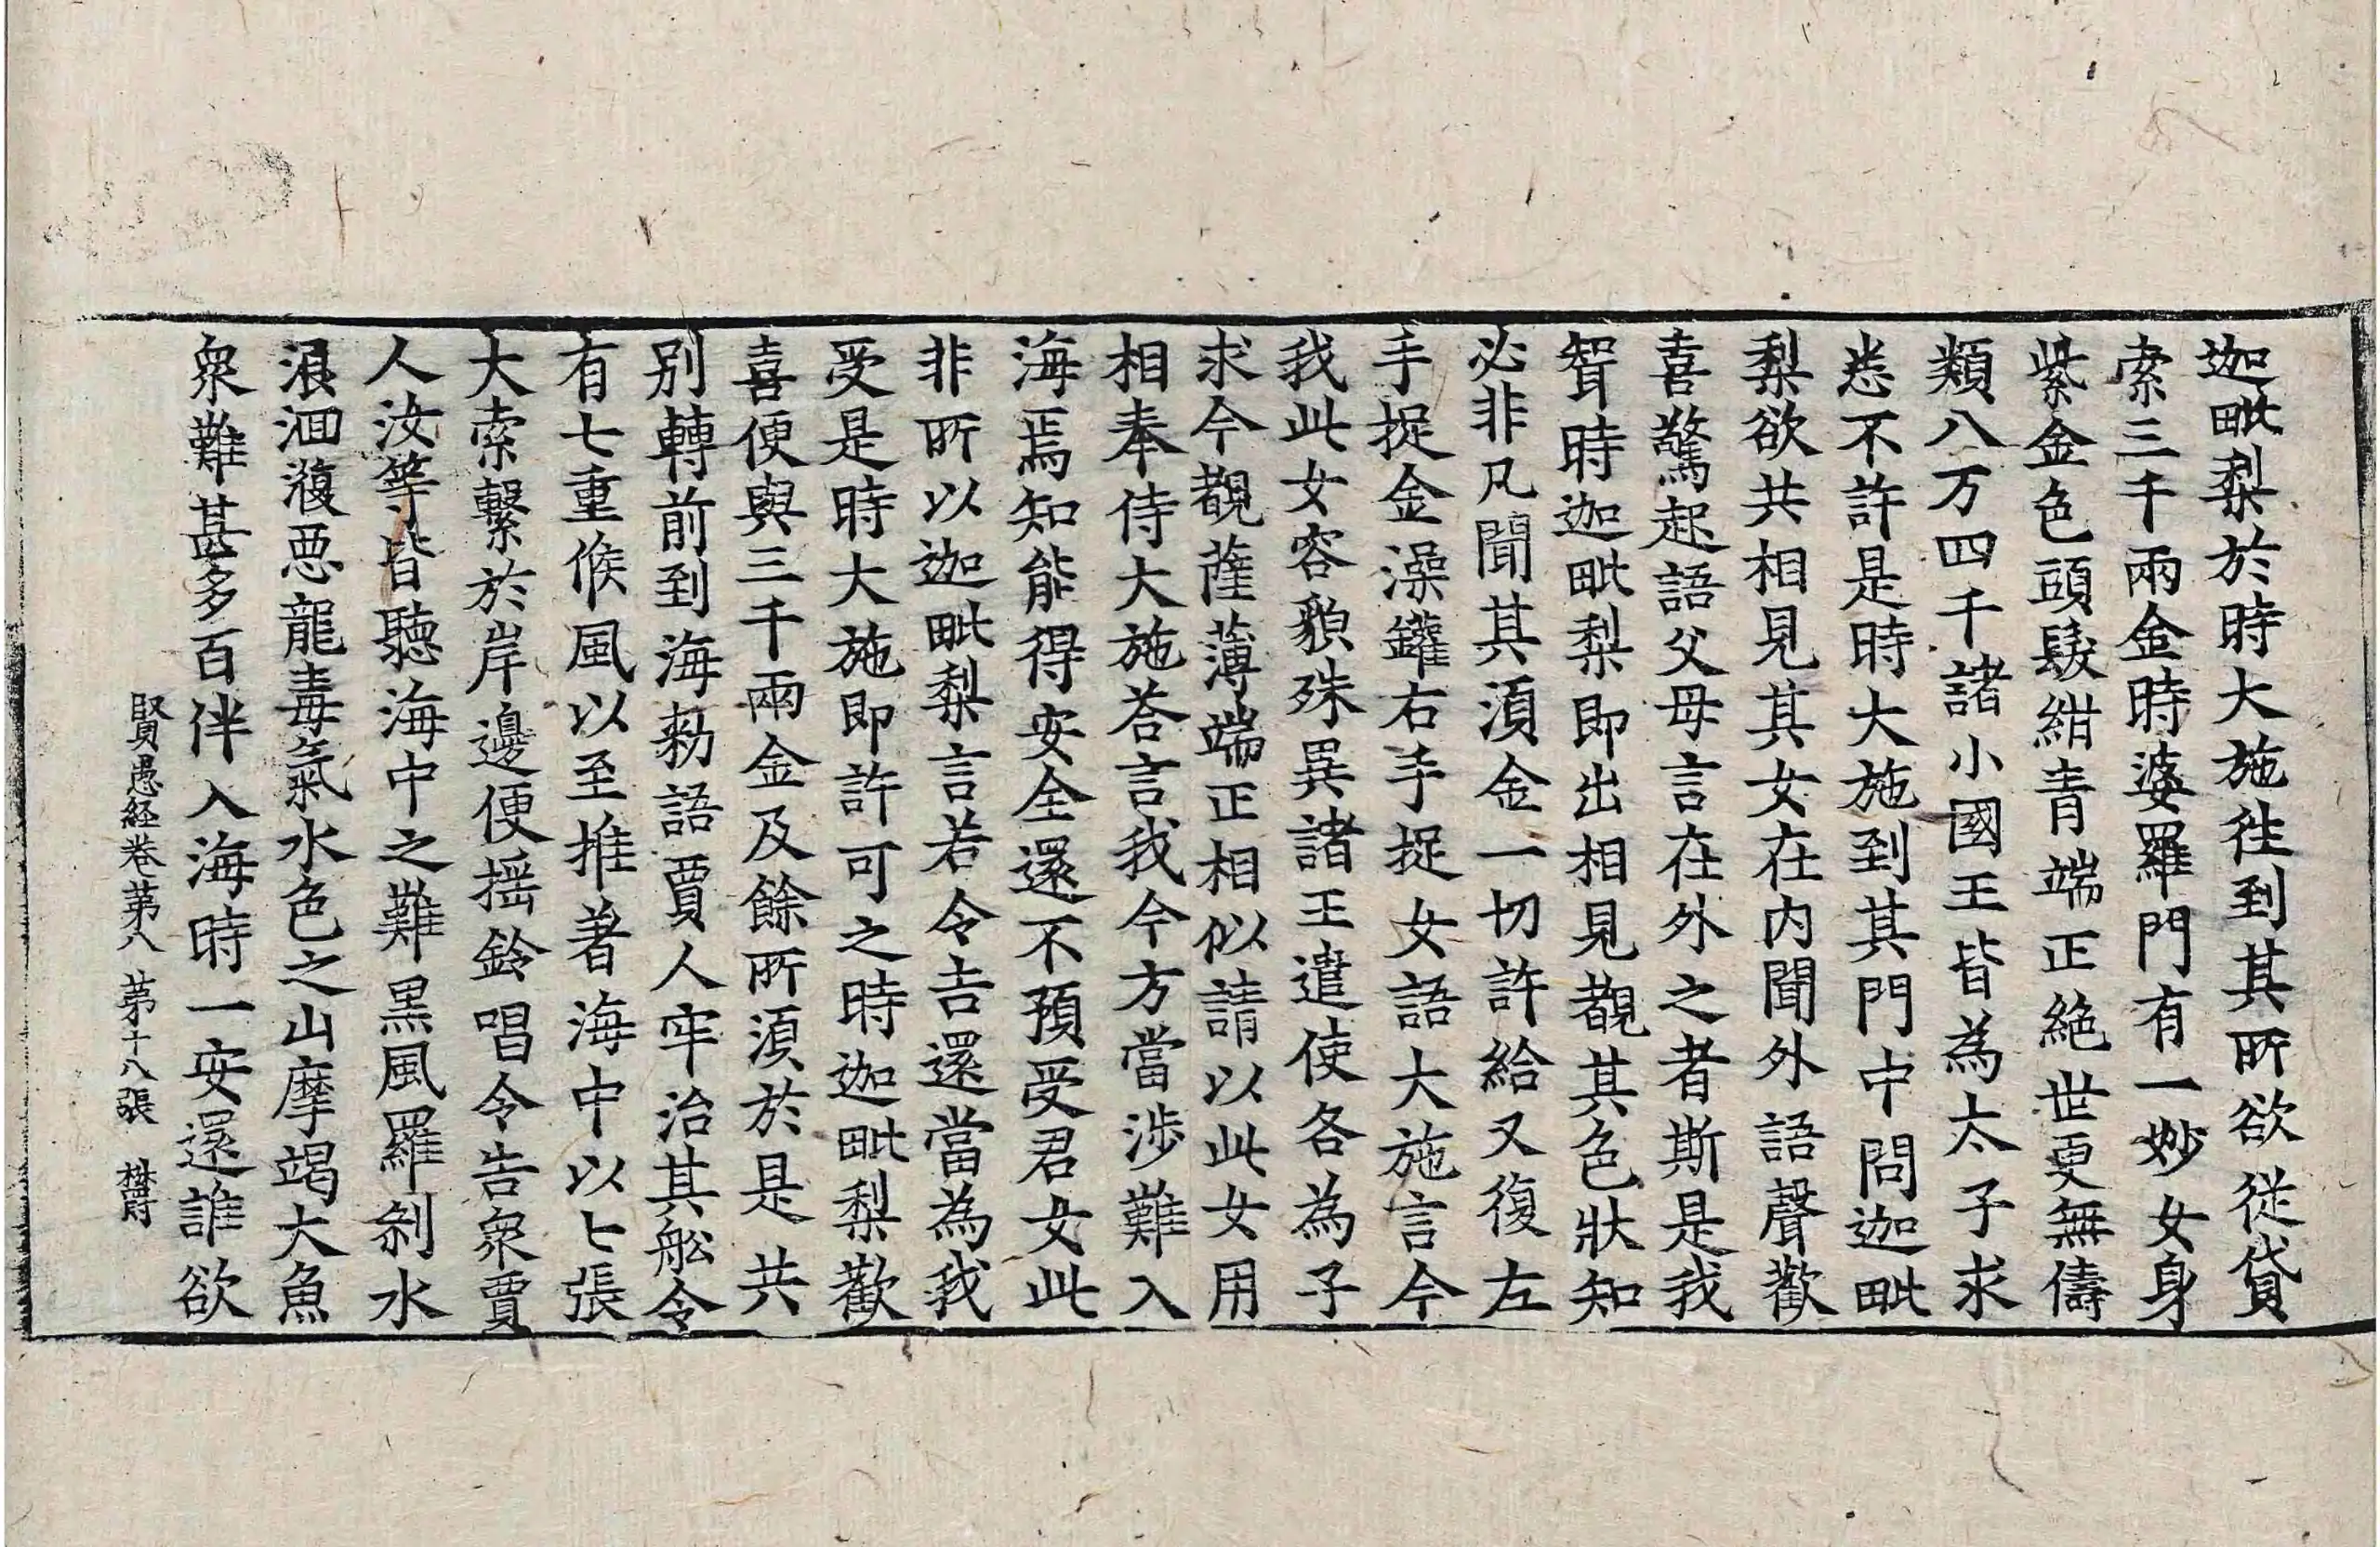 迦毗梨於時大施往到其所欲從貸
索三千兩金時婆羅門有一妙女身
紫金色頭髮紺青端正絶世更無儔
類八万四千諸小國王皆為太子求
悉不許是時大施到其門中問迦毗
梨欲共相見其女在内聞外語聲歡
喜驚起語父母言在外之者斯是我
聟時迦毗梨即出相見覩其色狀知
必非凡聞其湏金一切許給又復左
手捉金澡罐右手捉女語大施言今
我此女容貌殊異諸王遣使各為子
求今覩薩薄端正相似請以此女用
相奉侍大施荅言我今方當涉難入
海焉知能得安全還不預受君女此
非所以迦毗梨言若令吉還當為我
受是時大施即許可之時迦毗梨歡
喜便與三千兩金及餘所湏於是共
别轉前到海勑語賈人牢治其舩令
有七重候風以至推著海中以七張
大索繫於岸邊便揺鈴唱令告衆賈
人汝等皆聽海中之難黒風羅刹水
浪洄澓悪龍毒氣水色之山摩竭大魚
衆難甚多百伴入海時一安還誰欲
賢愚経卷苐八 苐十八張